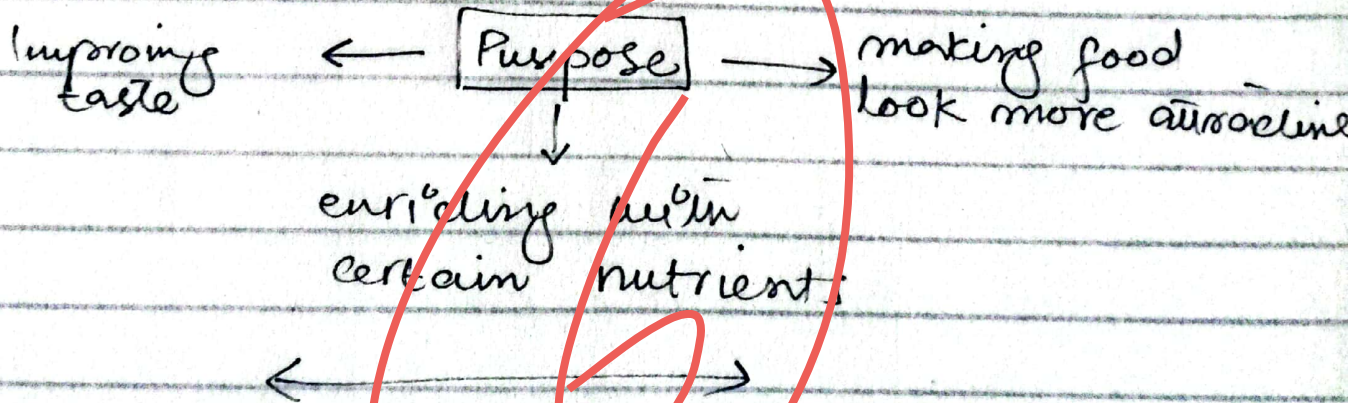 Improing
taste
Purpose
making food
look more attractive
enriching with
certain nutrients